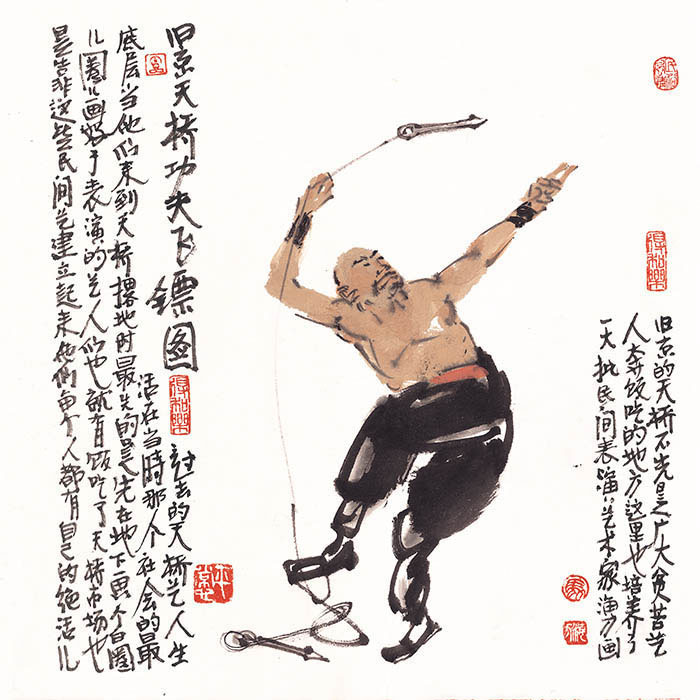 旧京天桥功夫飞镖图
过去的天桥艺人生
活在当時那个社会的最
底层当他们来到天桥撂地时最先的是先在地下画个白圈
儿圈儿画好了表演的艺人们也就有饭吃了天桥市场也
是靠这些民间艺建立起来他們每个人都有自己的绝活儿
旧京的天桥不光是广大贫苦艺
人奔饭吃的地方这里也培养了
一大批民间表演艺术家海方画